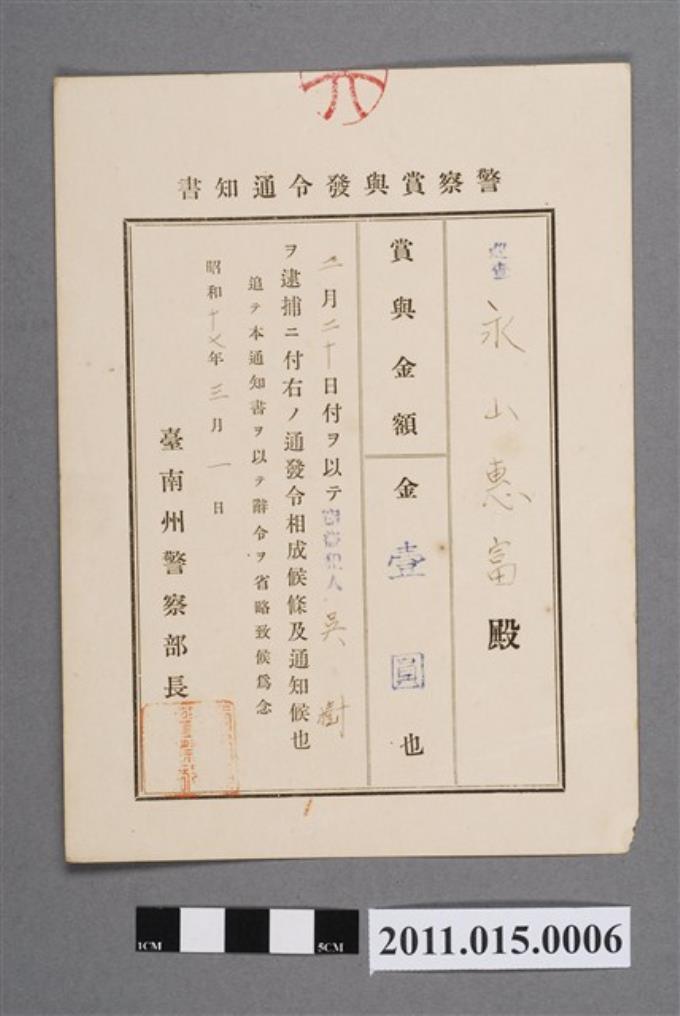 警察賞與發令通知書
巡查 永山惠富殿
賞與金額
金壹圓也
二月二十日付ヲ以テ 犯人 吳樹
ヲ逮捕ニ付右ノ通發令相成候條及通知候也
追テ本通知書ヲ以テ辭令ヲ省略致候爲念
昭和十七年三月一日
臺南州警察部長
1CM
5CM
2011.015.0006